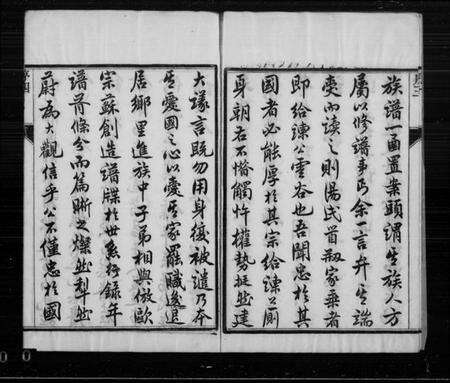 族譜一函置業頭謂生族人方
屬以修譜事丐余一言弁其端
受而讀之則陽氏首刱家乘者
即給諫公雲谷也吾聞忠於其
國者必能厚於其宗給諫公厠
身朝右不惜觸忤權勢挺然建
大議言既勿用身復被譴乃本
其愛國之心以愛其家罷職後退
居鄉里進族中子弟相與倣歐
宗蘇創造譜牒於世系行錄年
譜胥條分而篇晰之燦然犁然
蔚為大觀信乎公不僅忠於國